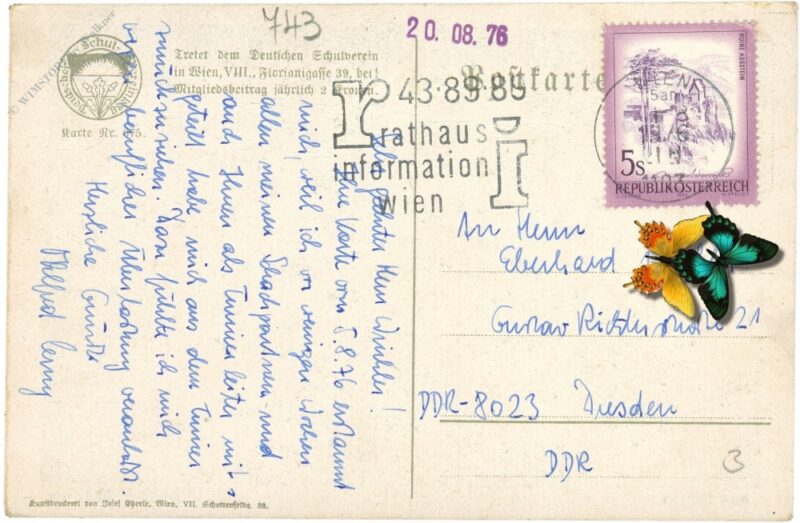 743
20. 08. 76
© WIMSTORY
Deutscher Schul-
Tretet dem Deutschen Schulverein
in Wien, VIII., Florianigasse 39, bei!
Mitgliedsbeitrag jährlich 2 Kronen.
Karte Nr.
Postkarte
r 43 89 89
rathaus
information
wien i
RUINE AGGSTEIN
5s
REPUBLIK ÖSTERREICH
WIEN
1103
Sehr geehrter Herr Winkler!
Ihre Karte vom 5.8.76 erstaunt
mich, weil ich vor wenigen Wochen
allen meinen Schachpartnern und
auch Ihnen als Turnierleiter mit-
geteilt habe mich aus dem Turnier
zurückzuziehen. Dazu fühlte ich mich
wegen beruflicher Überlastung veranlaßt.
Herzliche Grüße
An Herrn
Eberhard
Gustav Richterstraße 21
DDR-8023 Dresden
DDR
3
Kunstdruckerei von Josef Eberle, Wien, VII. Schottenfeldg. 38.